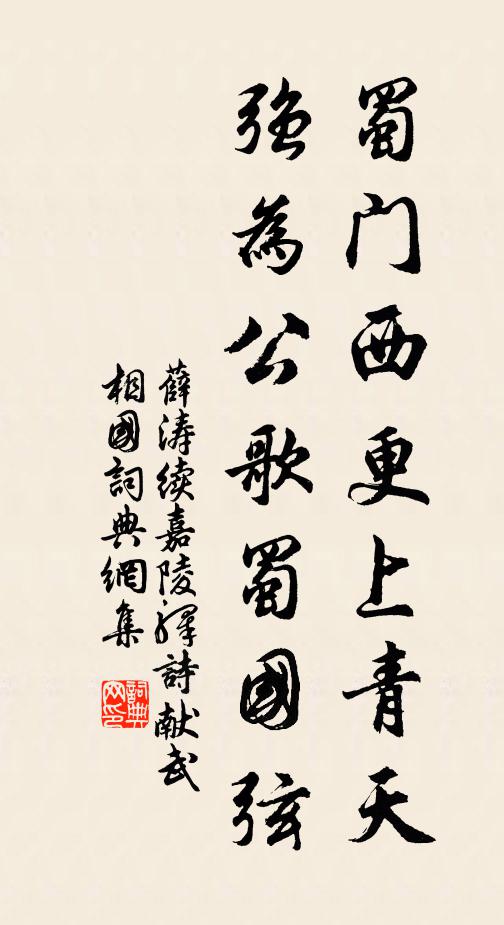 蜀门西更上青天
強為公歌蜀國弦
薛涛续嘉陵驛詩献武
相國詞典網集
詞典网印